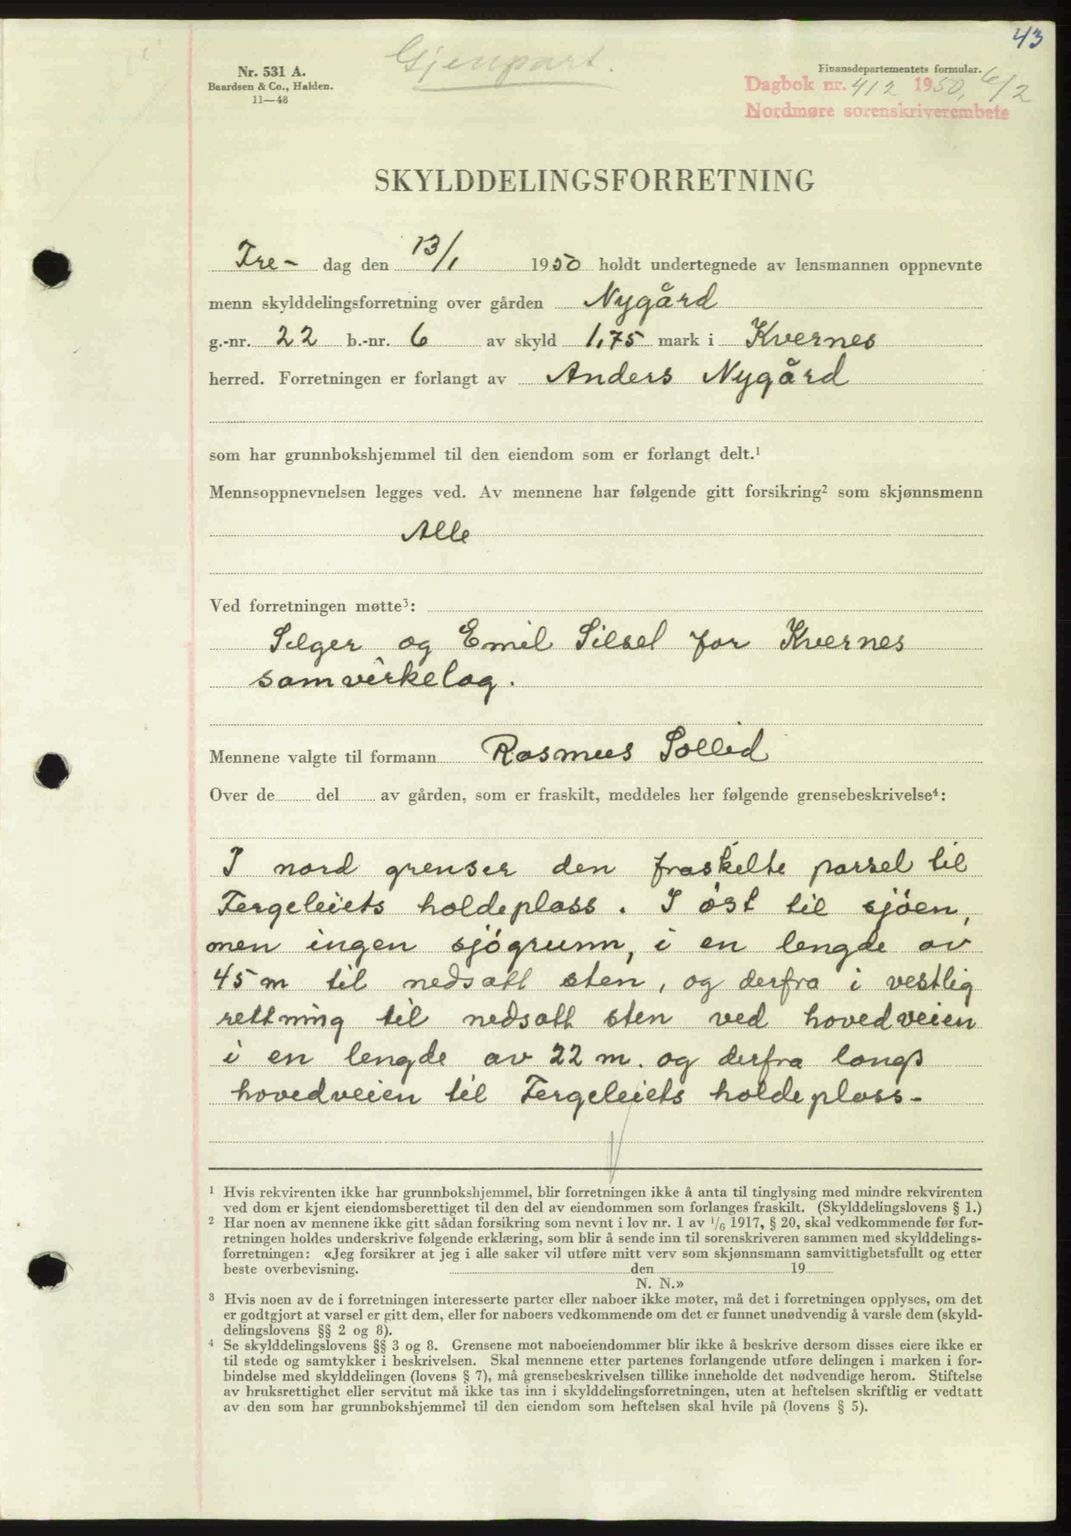 43
Gjenpart.
Nr. 531 A.
Baardsen & Co., Halden.
11—48
Finansdepartementets formular.
Dagbok nr. 412 1950, 6/2
Nordmøre sorenskriverembete
SKYLDDELINGSFORRETNING
Fre- dag den 13/1 1950 holdt undertegnede av lensmannen oppnevnte
menn skylddelingsforretning over gården Nygård
g.-nr. 22 b.-nr. 6 av skyld 1,75 mark i Kvernes
herred. Forretningen er forlangt av Anders Nygård
som har grunnbokshjemmel til den eiendom som er forlangt delt.¹
Mennsoppnevnelsen legges ved. Av mennene har følgende gitt forsikring² som skjønnsmenn
Alle
Ved forretningen møtte³:
Selger og Emil Silsel for Kvernes
samvirkelag.
Mennene valgte til formann Rasmus Sollid
Over de del av gården, som er fraskilt, meddeles her følgende grensebeskrivelse⁴:
I nord grenser den fraskelte parsel til
Fergeleiets holdeplass. I øst til sjöen,
men ingen sjögrunn, i en lengde av
45 m til nedsatt sten, og derfra i vestlig
rettning til nedsatt sten ved hovedveien
i en lengde av 22 m. og derfra langs
hovedveien til Fergeleiets holdeplass-
¹ Hvis rekvirenten ikke har grunnbokshjemmel, blir forretningen ikke å anta til tinglysing med mindre rekvirenten
ved dom er kjent eiendomsberettiget til den del av eiendommen som forlanges fraskilt. (Skylddelingslovens § 1.)
² Har noen av mennene ikke gitt sådan forsikring som nevnt i lov nr. 1 av 1/6 1917, § 20, skal vedkommende før for-
retningen holdes underskrive følgende erklæring, som blir å sende inn til sorenskriveren sammen med skylddelings-
forretningen: «Jeg forsikrer at jeg i alle saker vil utføre mitt verv som skjønnsmann samvittighetsfullt og etter
beste overbevisning. den 19
N. N.»
³ Hvis noen av de i forretningen interesserte parter eller naboer ikke møter, må det i forretningen opplyses, om det
er godtgjort at varsel er gitt dem, eller for naboers vedkommende om det er funnet unødvendig å varsle dem (skyld-
delingslovens §§ 2 og 8).
⁴ Se skylddelingslovens §§ 3 og 8. Grensene mot naboeiendommer blir ikke å beskrive dersom disses eiere ikke er
til stede og samtykker i beskrivelsen. Skal mennene etter partenes forlangende utføre delingen i marken i for-
bindelse med skylddelingen (lovens § 7), må grensebeskrivelsen tillike inneholde det nødvendige herom. Stiftelse
av bruksrettighet eller servitut må ikke tas inn i skylddelingsforretningen, uten at heftelsen skriftlig er vedtatt
av den som har grunnbokshjemmel til den eiendom som heftelsen skal hvile på (lovens § 5).